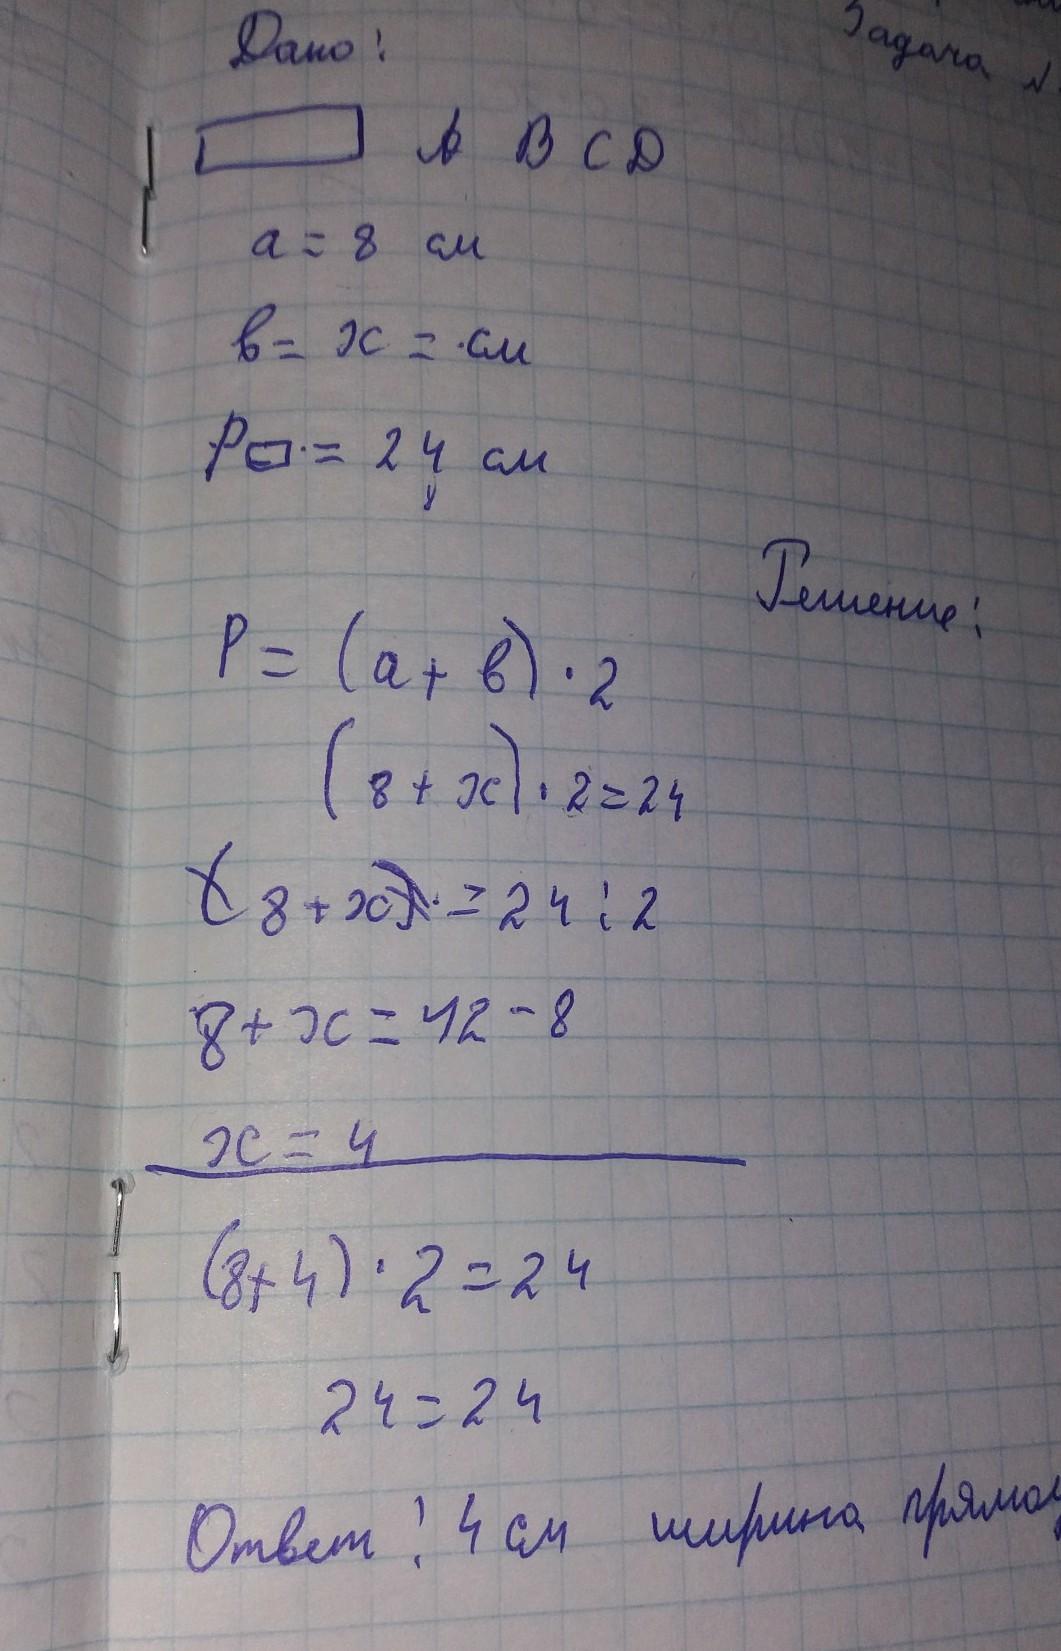 Задача №
Дано:
A B C D
a = 8 см
в = x = см
P▭ = 24 см
Решение:
P = (a + в) · 2
(8 + x) · 2 = 24
(8 + x) = 24 : 2
8 + x = 12 - 8
x = 4
(8+4) · 2 = 24
24 = 24
Ответ: 4 см ширина прямоу